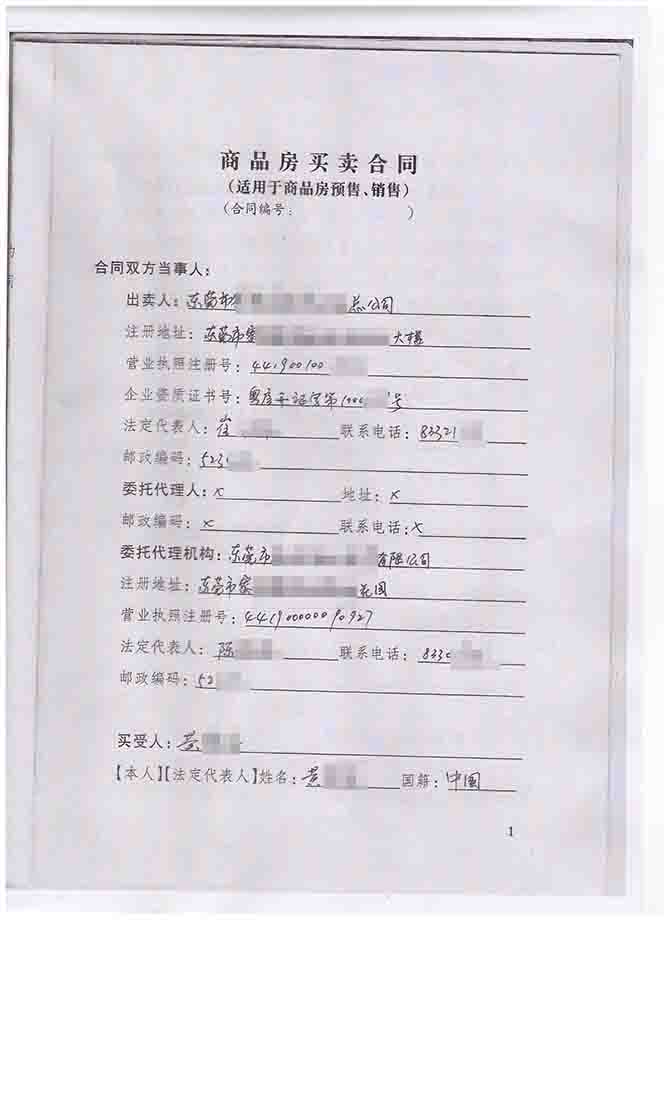 商品房买卖合同
(适用于商品房预售、销售)
(合同编号: )
合同双方当事人:
出卖人:东莞市 总公司
注册地址:东莞市寮 大楼
营业执照注册号:441900100
企业资质证书号:粤房开证字第1000 号
法定代表人:崔 联系电话:83321
邮政编码:523
委托代理人:× 地址:×
邮政编码:× 联系电话:×
委托代理机构:东莞市 有限公司
注册地址:东莞市寮 花园
营业执照注册号:4419000090927
法定代表人:陈 联系电话:8330
邮政编码:52
买受人:黄
【本人】【法定代表人】姓名:黄 国籍:中国
1